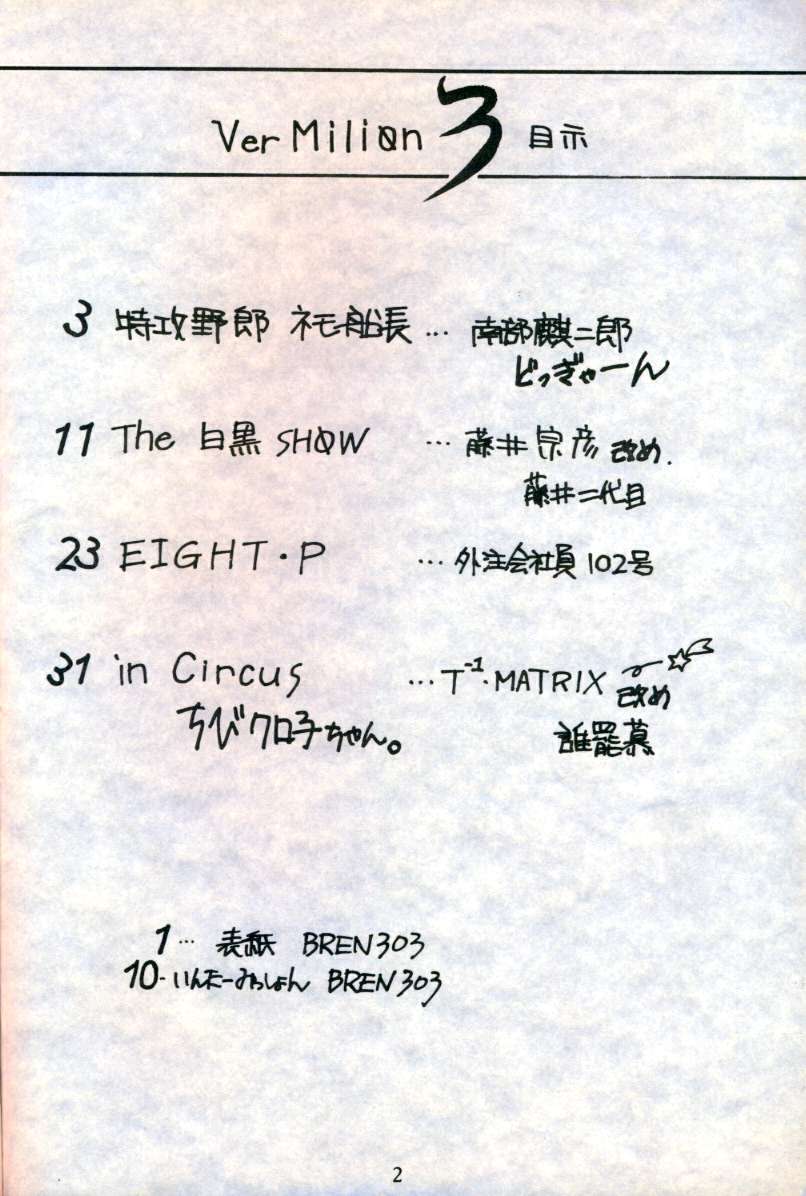 Ver Milion 3 目示
3 特攻野郎 ネモ船長 … 南部麒二郎
どっぎゃーん
11 The 白黒 SHOW … 藤井宗彦 改め.
藤井二代目
23 EIGHT・P … 外注会社員 102号
31 in Circus … T⁻¹・MATRIX 改め
ちびクロ子ちゃん。 誰罷慕
1… 表紙 BREN303
10- いんたーみっしょん BREN303
2